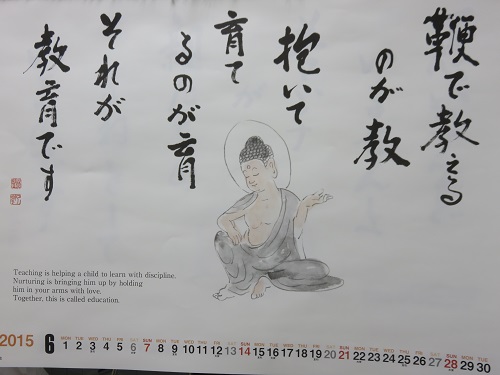 鞭で教える
のが教
抱いて
育て
るのが育
それが
教育です
Teaching is helping a child to learn with discipline.
Nurturing is bringing him up by holding
him in your arms with love.
Together, this is called education.
2015 6
MON TUE WED THU FRI SAT SUN MON TUE WED THU FRI SAT SUN MON TUE WED THU FRI SAT SUN MON TUE WED THU FRI SAT SUN MON TUE
1 2 3 4 5 6 7 8 9 10 11 12 13 14 15 16 17 18 19 20 21 22 23 24 25 26 27 28 29 30